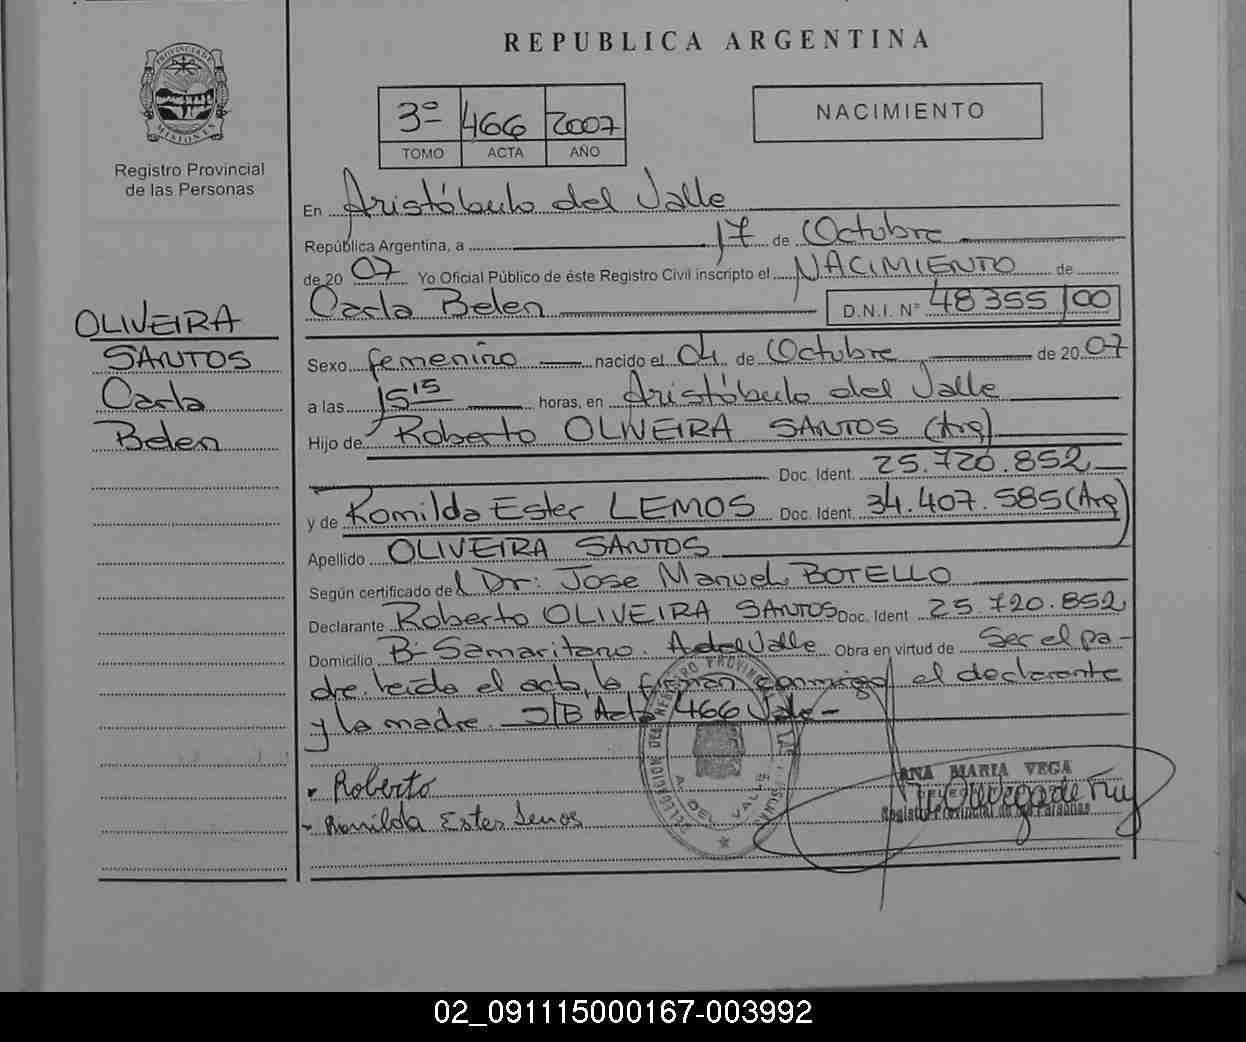 REPUBLICA ARGENTINA
PROVINCIA DE
MISIONES
Registro Provincial
de las Personas
3º 466 2007
TOMO ACTA AÑO
NACIMIENTO
En Aristóbulo del Valle
República Argentina, a 17 de Octubre
de 20 07 Yo Oficial Público de éste Registro Civil inscripto el NACIMIENTO de
Carla Belen D.N.I. Nº 48355100
OLIVEIRA
SANTOS
Carla
Belen
Sexo femenino nacido el 04 de Octubre de 20 07
a las 15 15 horas, en Aristóbulo del Valle
Hijo de Roberto OLIVEIRA SANTOS (Arg)
Doc. Ident. 25.720.852
y de Romilda Ester LEMOS Doc. Ident. 34.407.585 (Arg)
Apellido OLIVEIRA SANTOS
Según certificado del Dr: Jose Manuel BOTELLO
Declarante Roberto OLIVEIRA SANTOS Doc. Ident 25.720.852
Domicilio Bº Samaritano. A del Valle Obra en virtud de Ser el pa-
dre leida el acta, la firman conmigo el declarante
y la madre. S/B Acta 466 Vale-
Roberto
Romilda Ester Lemos
DELEGACION DEL REGISTRO PROVINCIAL
A. DEL VALLE
ANA MARIA VEGA
Registro Provincial de las Personas
02_091115000167-003992